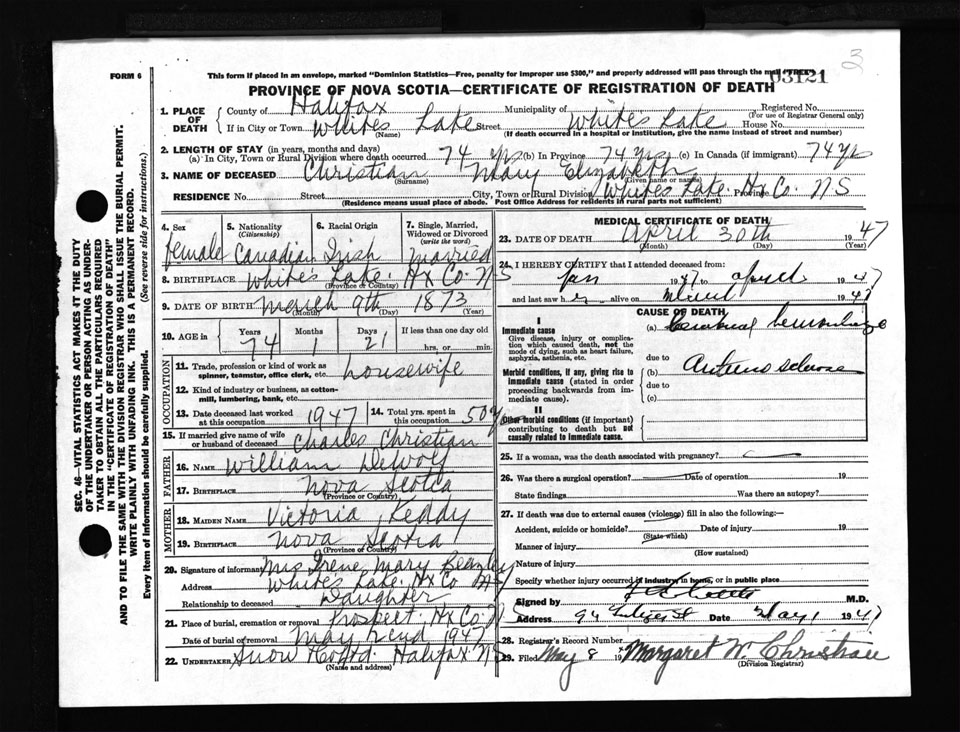 3
FORM 6
This form if placed in an envelope, marked "Dominion Statistics—Free, penalty for improper use $300," and properly addressed will pass through the mail "FREE"
03121
PROVINCE OF NOVA SCOTIA—CERTIFICATE OF REGISTRATION OF DEATH
1. PLACE OF DEATH
County of Halifax Municipality of Whites Lake Registered No.
(For use of Registrar General only)
If in City or Town Whites Lake Street House No.
(Name) (If death occurred in a hospital or institution, give the name instead of street and number)
2. LENGTH OF STAY (in years, months and days)
(a) In City, Town or Rural Division where death occurred 74 yrs (b) In Province 74 yrs (c) In Canada (if immigrant) 74 yrs
3. NAME OF DECEASED Christian Mary Elizabeth
(Surname) (Given name or names)
RESIDENCE No. Street City, Town or Rural Division Whites Lake Province Hx Co. N S
(Residence means usual place of abode. Post Office Address for residents in rural parts not sufficient)
4. Sex 5. Nationality (Citizenship) 6. Racial Origin 7. Single, Married, Widowed or Divorced (write the word)
female Canadian Irish married
8. BIRTHPLACE Whites Lake Hx Co N S
(Province or Country)
9. DATE OF BIRTH March 9th 1873
(Month) (Day) (Year)
10. AGE in Years Months Days If less than one day old
74 1 21 hrs. or min.
OCCUPATION
11. Trade, profession or kind of work as spinner, teamster, office clerk, etc. housewife
12. Kind of industry or business, as cotton-mill, lumbering, bank, etc.
13. Date deceased last worked at this occupation 1947 14. Total yrs. spent in this occupation 50 y
15. If married give name of wife or husband of deceased Charles Christian
FATHER
16. NAME William DeWolf
17. BIRTHPLACE Nova Scotia
(Province or Country)
MOTHER
18. MAIDEN NAME Victoria Reddy
19. BIRTHPLACE Nova Scotia
(Province of Country)
20. Signature of informant Mrs Irene Mary Beazley
Address Whites Lake Hx Co N S
Relationship to deceased Daughter
21. Place of burial, cremation or removal Prospect Hx Co. N S
Date of burial or removal May 2end 1947
22. UNDERTAKER Snow Co Ltd. Halifax N S
(Name and address)
MEDICAL CERTIFICATE OF DEATH
23. DATE OF DEATH April 30th 1947
(Month) (Day) (Year)
24. I HEREBY CERTIFY that I attended deceased from:
Jan 1947 to April 1947
and last saw her alive on 1947
CAUSE OF DEATH
I
Immediate cause
Give disease, injury or complication which caused death, not the mode of dying, such as heart failure, asphyxia, asthenia, etc.
(a) Cerebral hemorrhage
due to
Morbid conditions, if any, giving rise to immediate cause (stated in order proceeding backwards from immediate cause).
(b) Arterio sclerosis
due to
(c)
II
Other morbid conditions (if important) contributing to death but not causally related to immediate cause.
25. If a woman, was the death associated with pregnancy?
26. Was there a surgical operation? Date of operation 19
State findings Was there an autopsy?
27. If death was due to external causes (violence) fill in also the following:—
Accident, suicide or homicide? Date of injury 19
(State which)
Manner of injury
(How sustained)
Nature of injury
Specify whether injury occurred in industry in home, or in public place
Signed by M.D.
Address Date May 1 1947
28. Registrar's Record Number
29. Filed May 8 19 Margaret W. Christian
(Division Registrar)
SEC. 46—VITAL STATISTICS ACT MAKES IT THE DUTY
OF THE UNDERTAKER OR PERSON ACTING AS UNDER-
TAKER TO OBTAIN ALL THE PARTICULARS REQUIRED
IN THE "CERTIFICATE OF REGISTRATION OF DEATH"
AND TO FILE THE SAME WITH THE DIVISION REGISTRAR WHO SHALL ISSUE THE BURIAL PERMIT.
WRITE PLAINLY WITH UNFADING INK. THIS IS A PERMANENT RECORD.
Every item of Information should be carefully supplied. (See reverse side for instructions.)